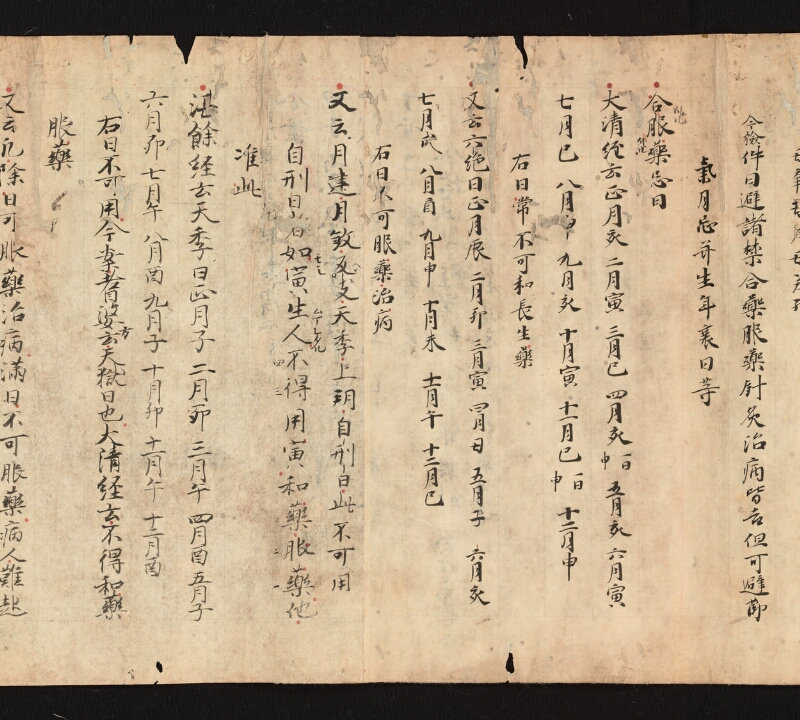 今撿件日避諸禁合藥服藥針灸治病皆吉但可避節
氣月忌并生年衰日等
合服藥忌日
大清經云正月亥 二月寅 三月巳 四月亥 一日申 五月亥 六月寅
七月巳 八月申 九月亥 十月寅 十一月巳 一日申 十二月申
右日常不可和長生藥
又云六絶日正月辰 二月卯 三月寅 四月丑 五月子 六月亥
七月戌 八月酉 九月申 十月未 十一月午 十二月巳
右日不可服藥治病
又云月建月煞支天季上朔自刑日此不可用
自刑日者如寅生人不得用寅和藥服藥他
准此
湛餘經云天季日正月子 二月卯 三月午 四月酉 五月子
六月卯 七月午 八月酉 九月子 十月卯 十一月午 十二月酉
右日不可用今案耆婆方云天獄日也大清經云不得和藥
服藥
又云凡除日可服藥治病滿日不可服藥病人難起